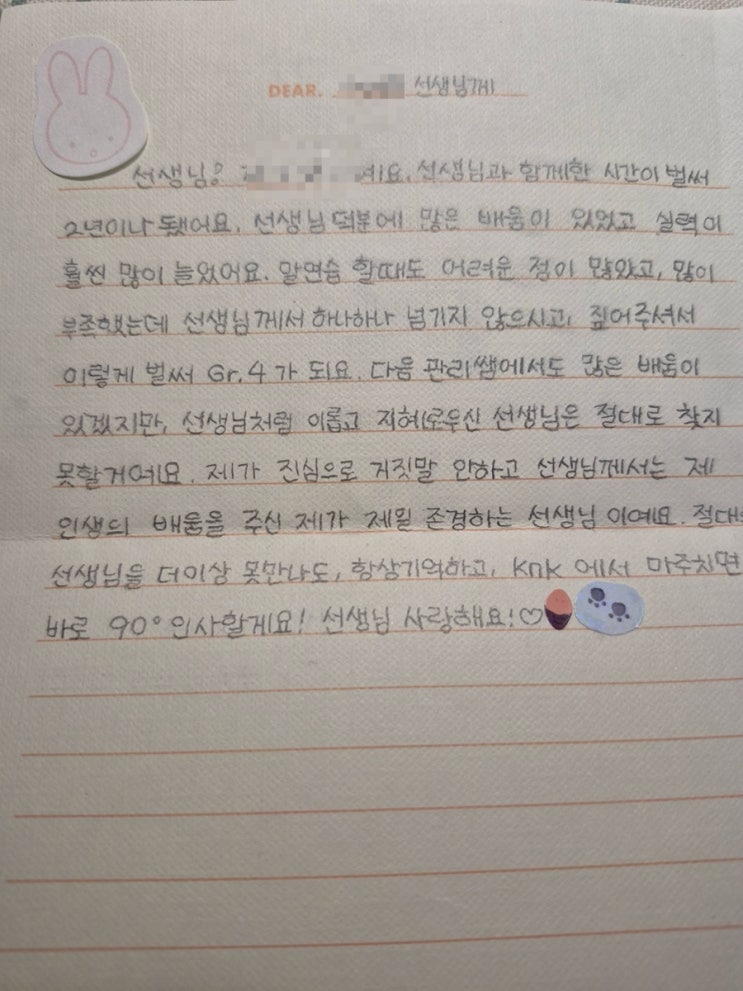 DEAR. 선생님께
선생님? 예요. 선생님과 함께한 시간이 벌써
2년이나 됐어요. 선생님 덕분에 많은 배움이 있었고 실력이
훨씬 많이 늘었어요. 말연습 할때도 어려운 점이 많았고, 많이
부족했는데 선생님께서 하나하나 넘기지 않으시고, 짚어주셔서
이렇게 벌써 Gr.4가 되요. 다음 관리쌤에서도 많은 배움이
있겠지만, 선생님처럼 이롭고 지혜로우신 선생님은 절대로 찾지
못할거예요. 제가 진심으로 거짓말 안하고 선생님께서는 제
인생의 배움을 주신 제가 제일 존경하는 선생님 이예요. 절대
선생님을 더이상 못만나도, 항상기억하고, knk 에서 마주치면
바로 90° 인사할게요! 선생님 사랑해요!♡